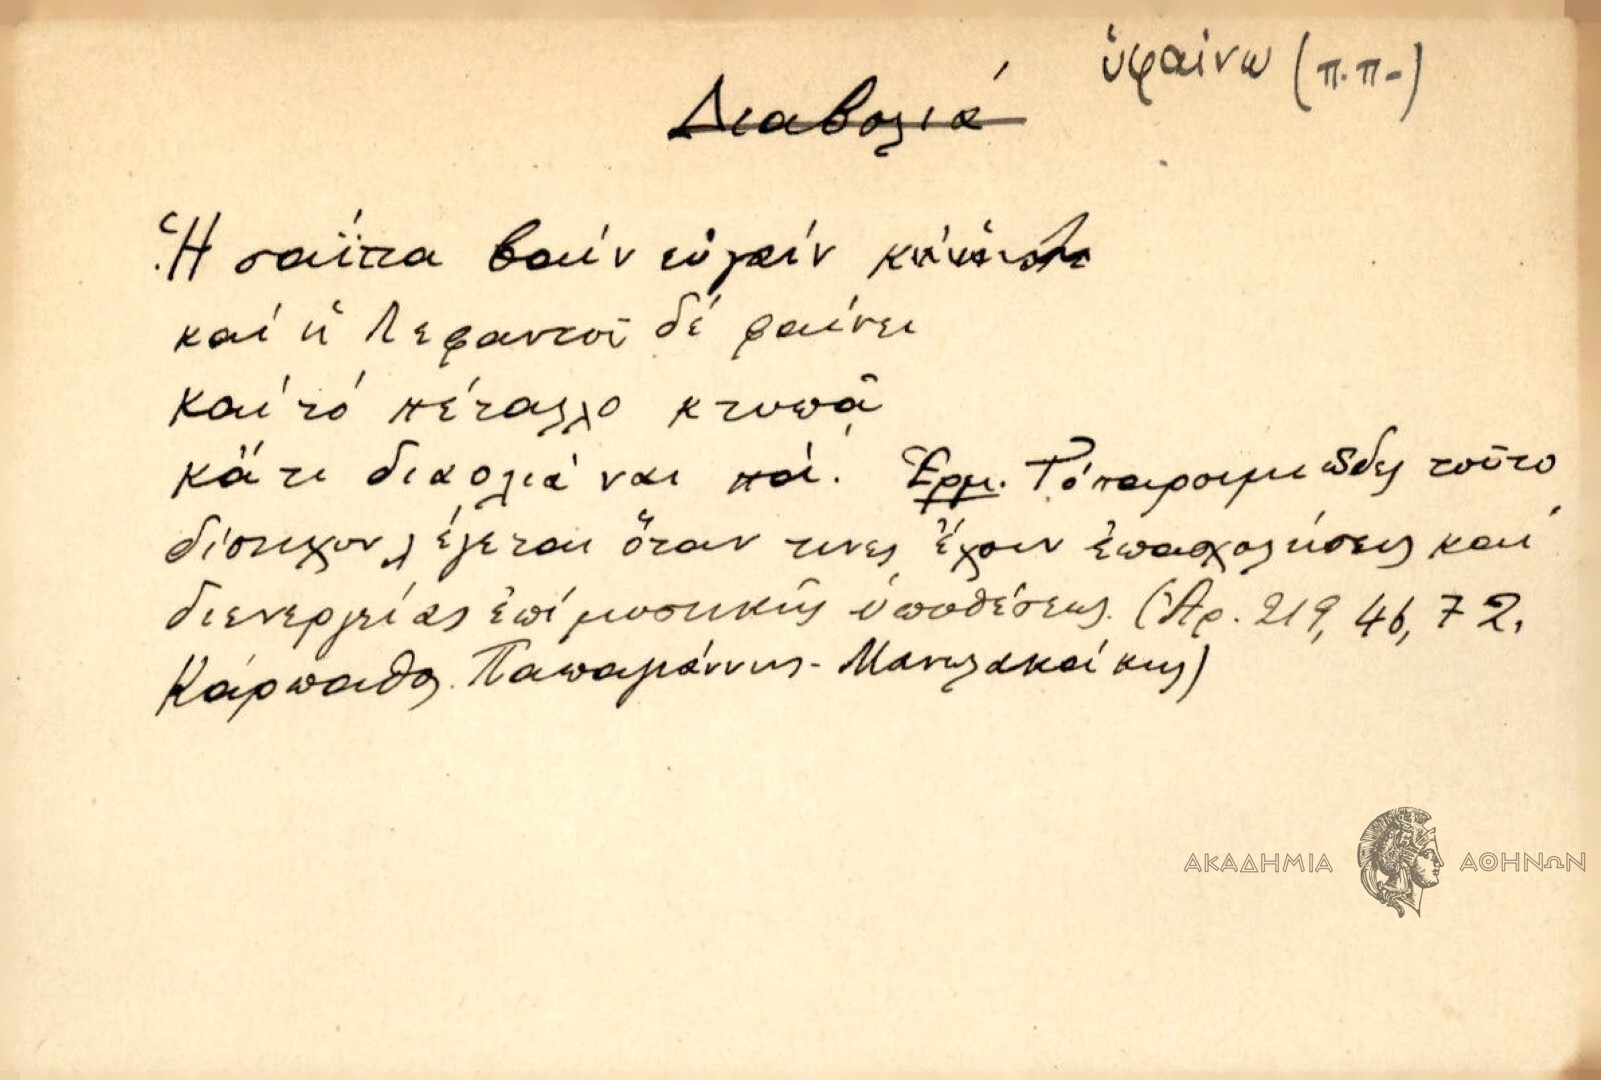 ὑφαίνω (π.π-)
Διαβολιά
Ἡ σαΐττα βαίν εὐγαίν
καί ἡ λεφαντοῦ δέ φαίνει
καί τό πέταλλο κτυπᾶ
κἄτι διαολιά ναι πά. Ἑρμ. Τό παροιμιῶδες τοῦτο
δίστιχον λέγεται ὅταν τινες ἔχουν ἐπασχολήσεις καί
διενεργείας ἐπί μυστικῆς ὑποθέσεως. (Ἀρ. 219, 46, 72.
Κάρπαθος. Παπαγιάννης - Μανωλακάκης)
ΑΚΑΔΗΜΙΑ ΑΘΗΝΩΝ